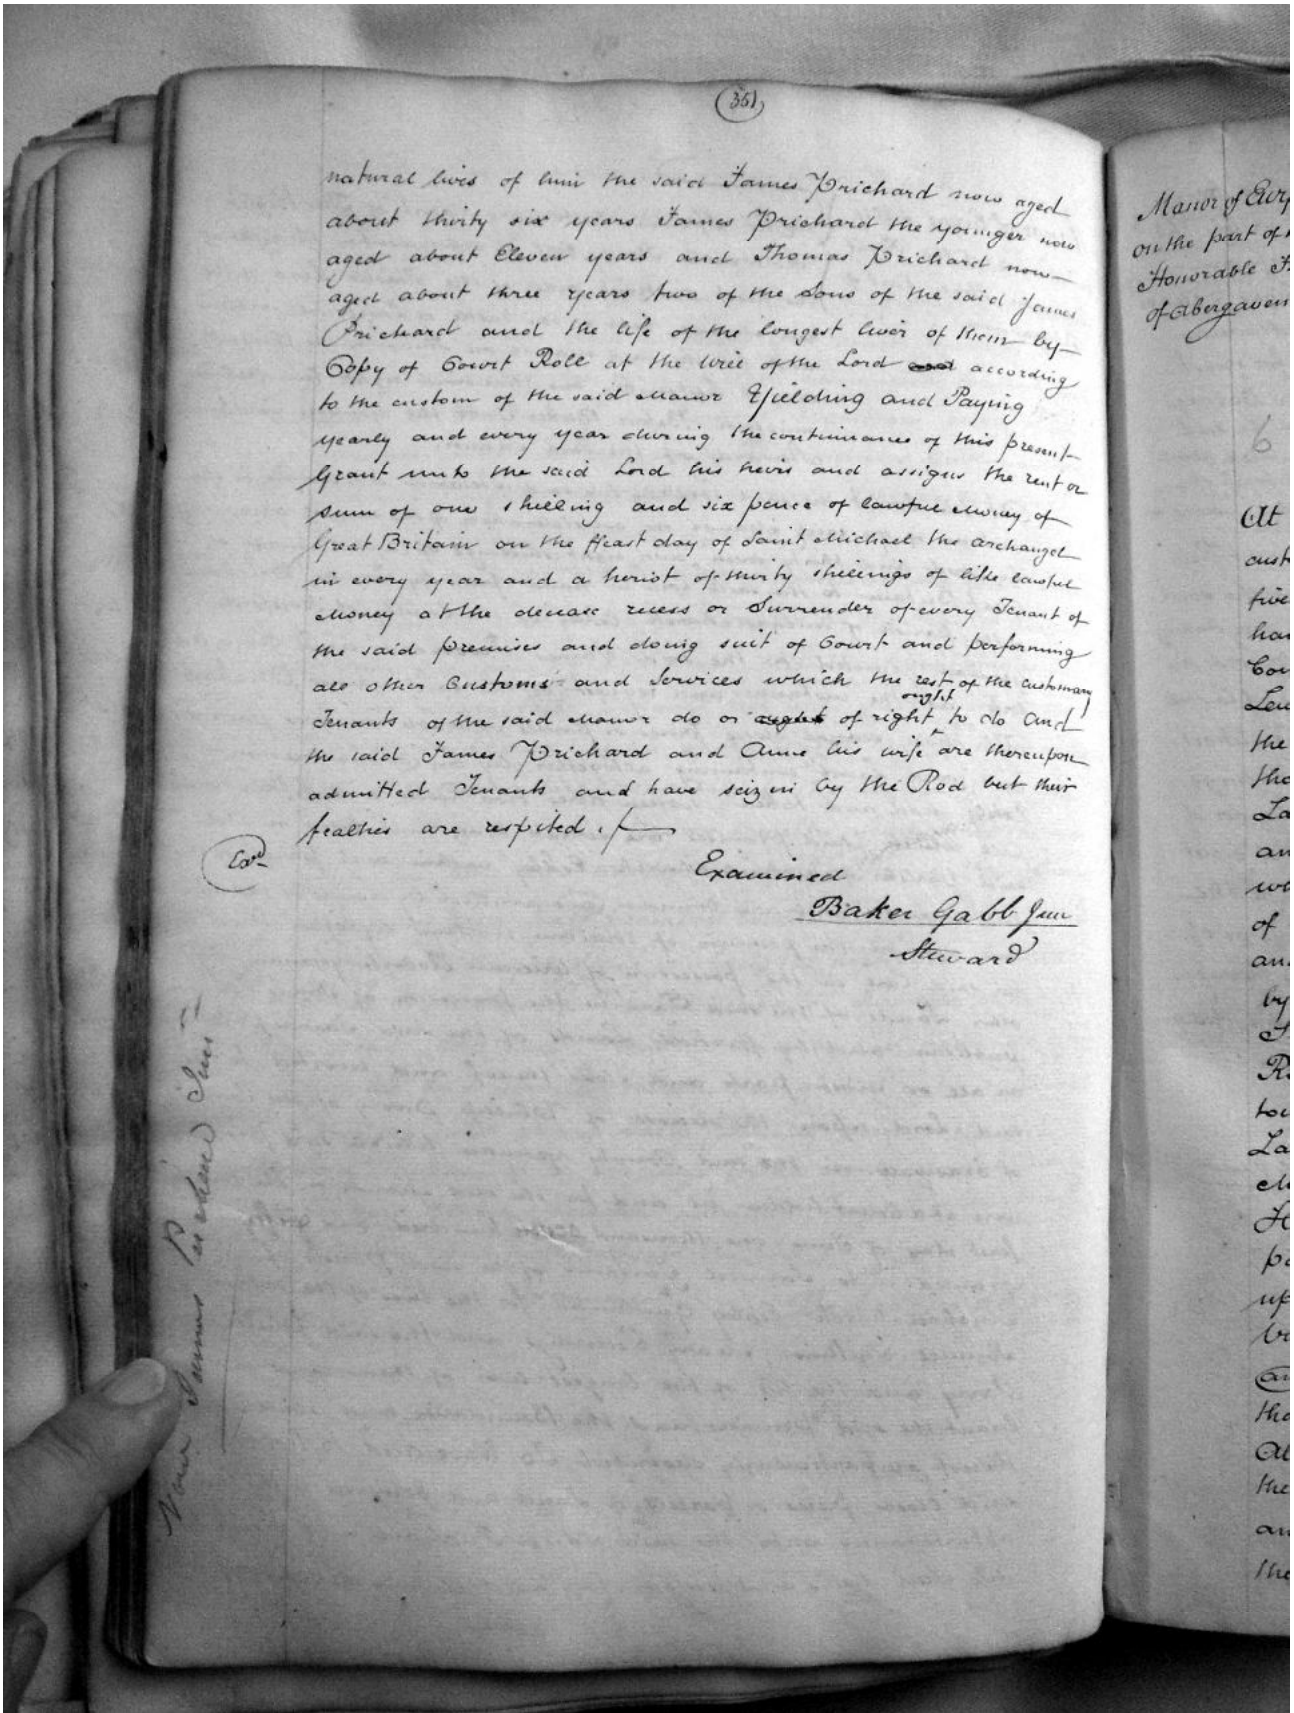 351
natural lives of him the said James Prichard now aged
about thirty six years James Prichard the younger now
aged about Eleven years and Thomas Prichard now
aged about three years two of the Sons of the said James
Prichard and the life of the longest liver of them by
Copy of Court Roll at the Will of the Lord and according
to the custom of the said Manor Yielding and Paying
yearly and every year during the continuance of this present
Grant unto the said Lord his heirs and assigns the rent or
sum of one shilling and six pence of lawful Money of
Great Britain on the ffeast day of Saint Michael the archangel
in every year and a heriot of thirty shillings of like lawful
Money at the decease recess or Surrender of every Tenant of
the said premises and doing suit of Court and performing
all other Customs and Services which the rest of the customary
Tenants of the said Manor do or ought of right ought to do and
the said James Prichard and Anne his wife are thereupon
admitted Tenants and have seizin by the Rod but their
fealties are respited
Exd
Examined
Baker Gabb Junr
Steward
Now James
Manor of
on the part of
Honorable
of Abergaven
6
At
custo
five
the
tha
La
an
of
an
by
La
up
tha
the
an
the